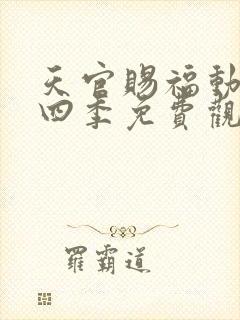 天官賜福動
四季免費觀
羅霸道